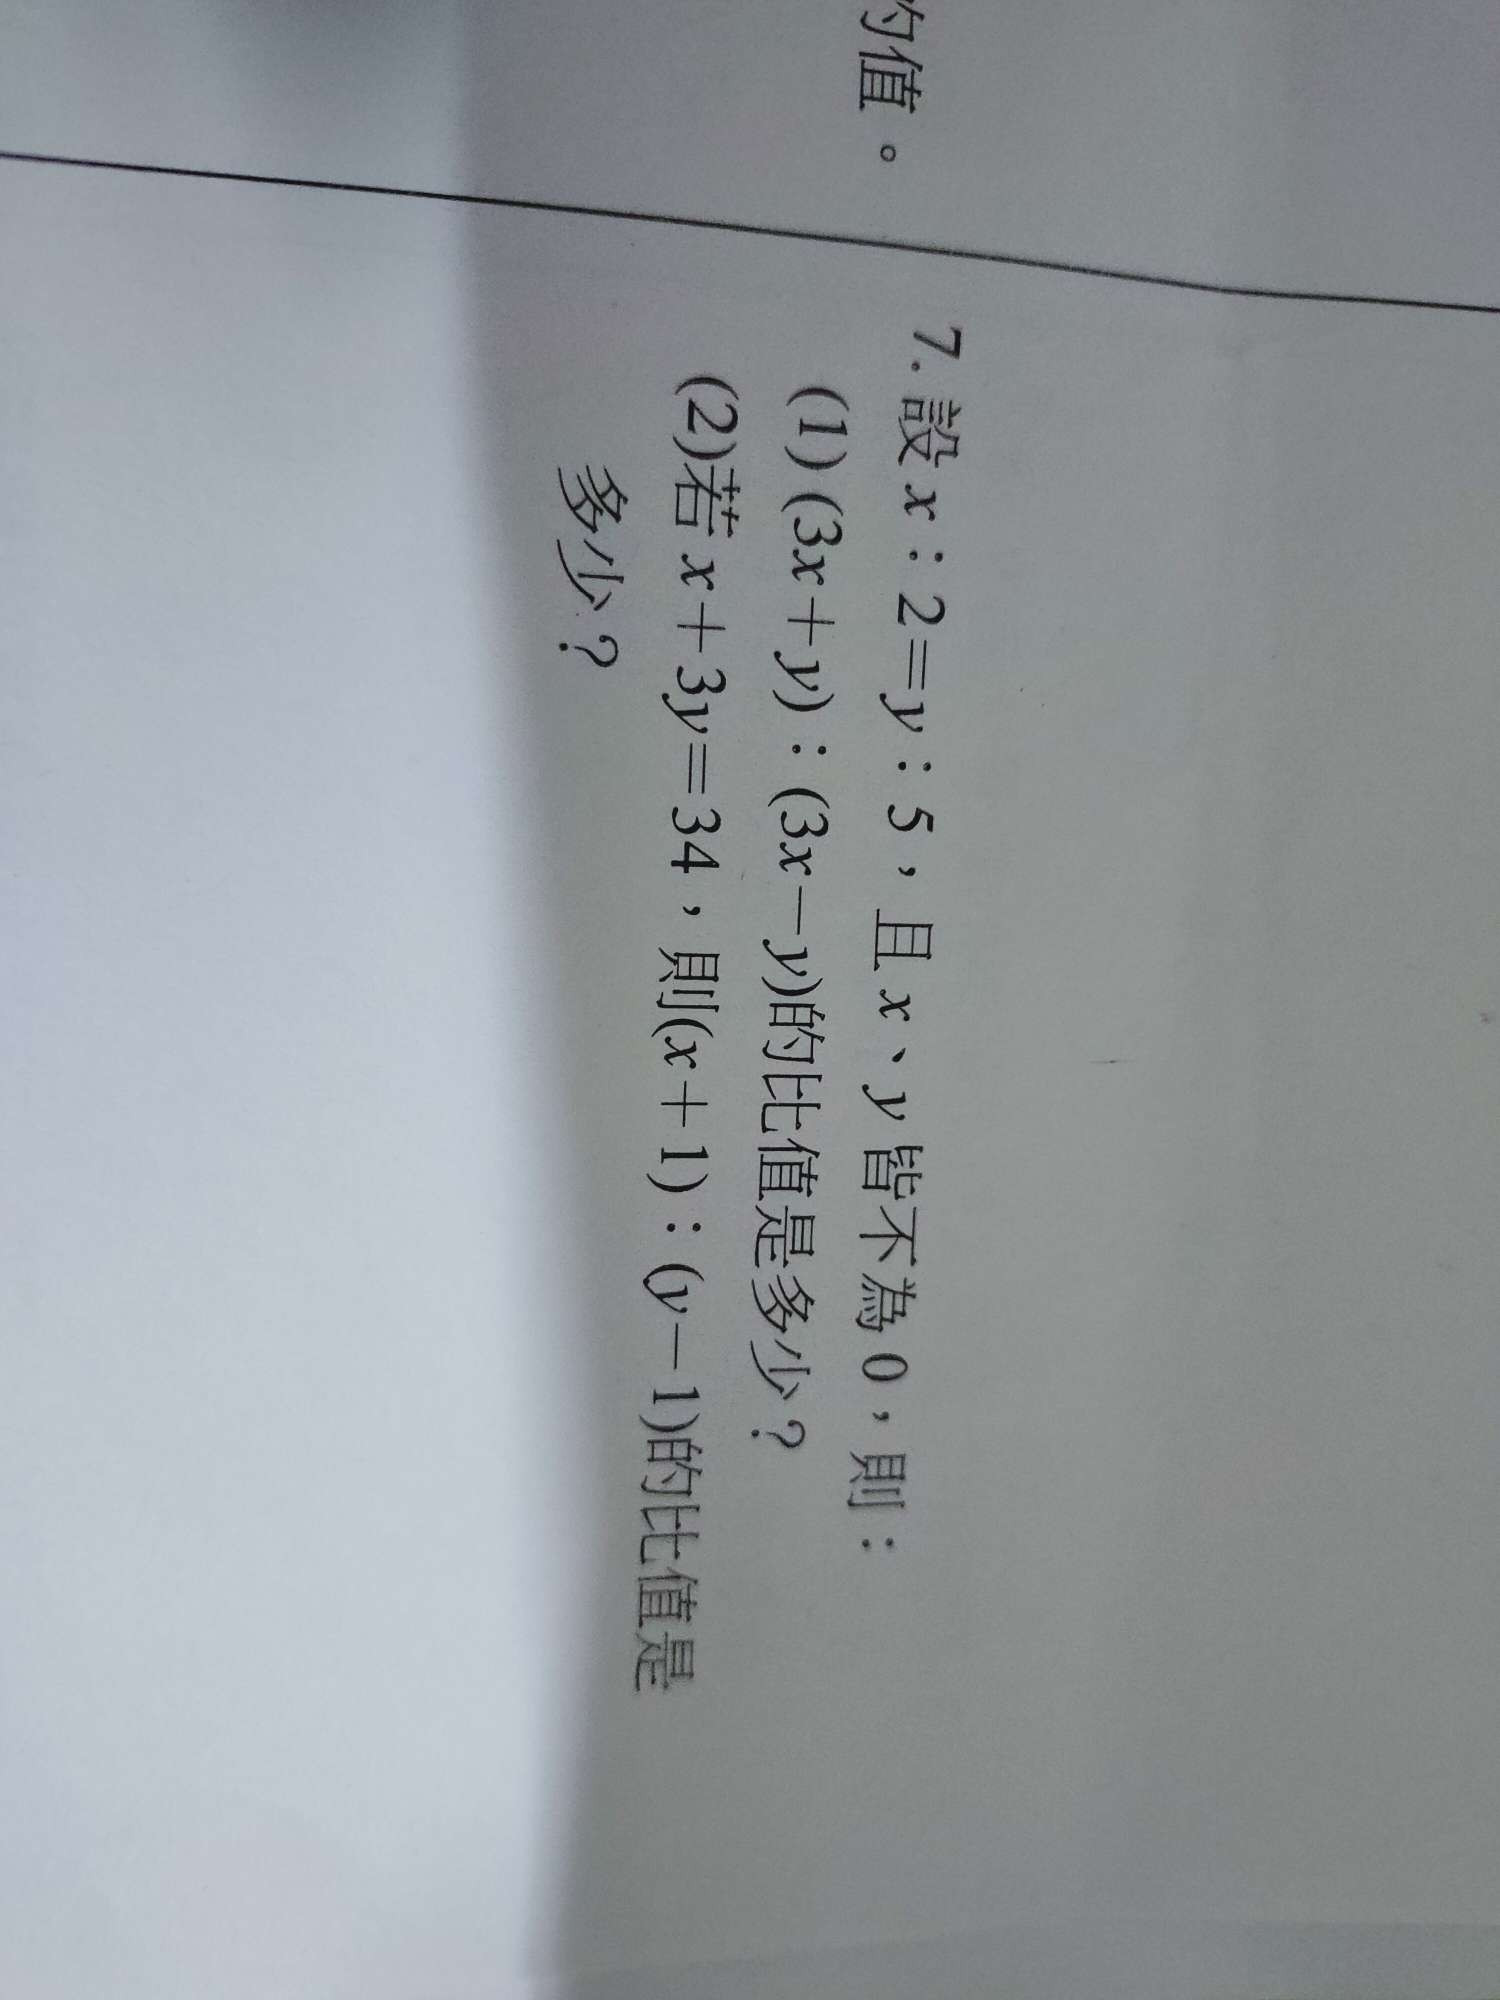 的值。
7. 設 x：2＝y：5，且 x、y 皆不為 0，則：
(1) (3x＋y)：(3x－y)的比值是多少？
(2)若 x＋3y＝34，則(x＋1)：(y－1)的比值是
多少？